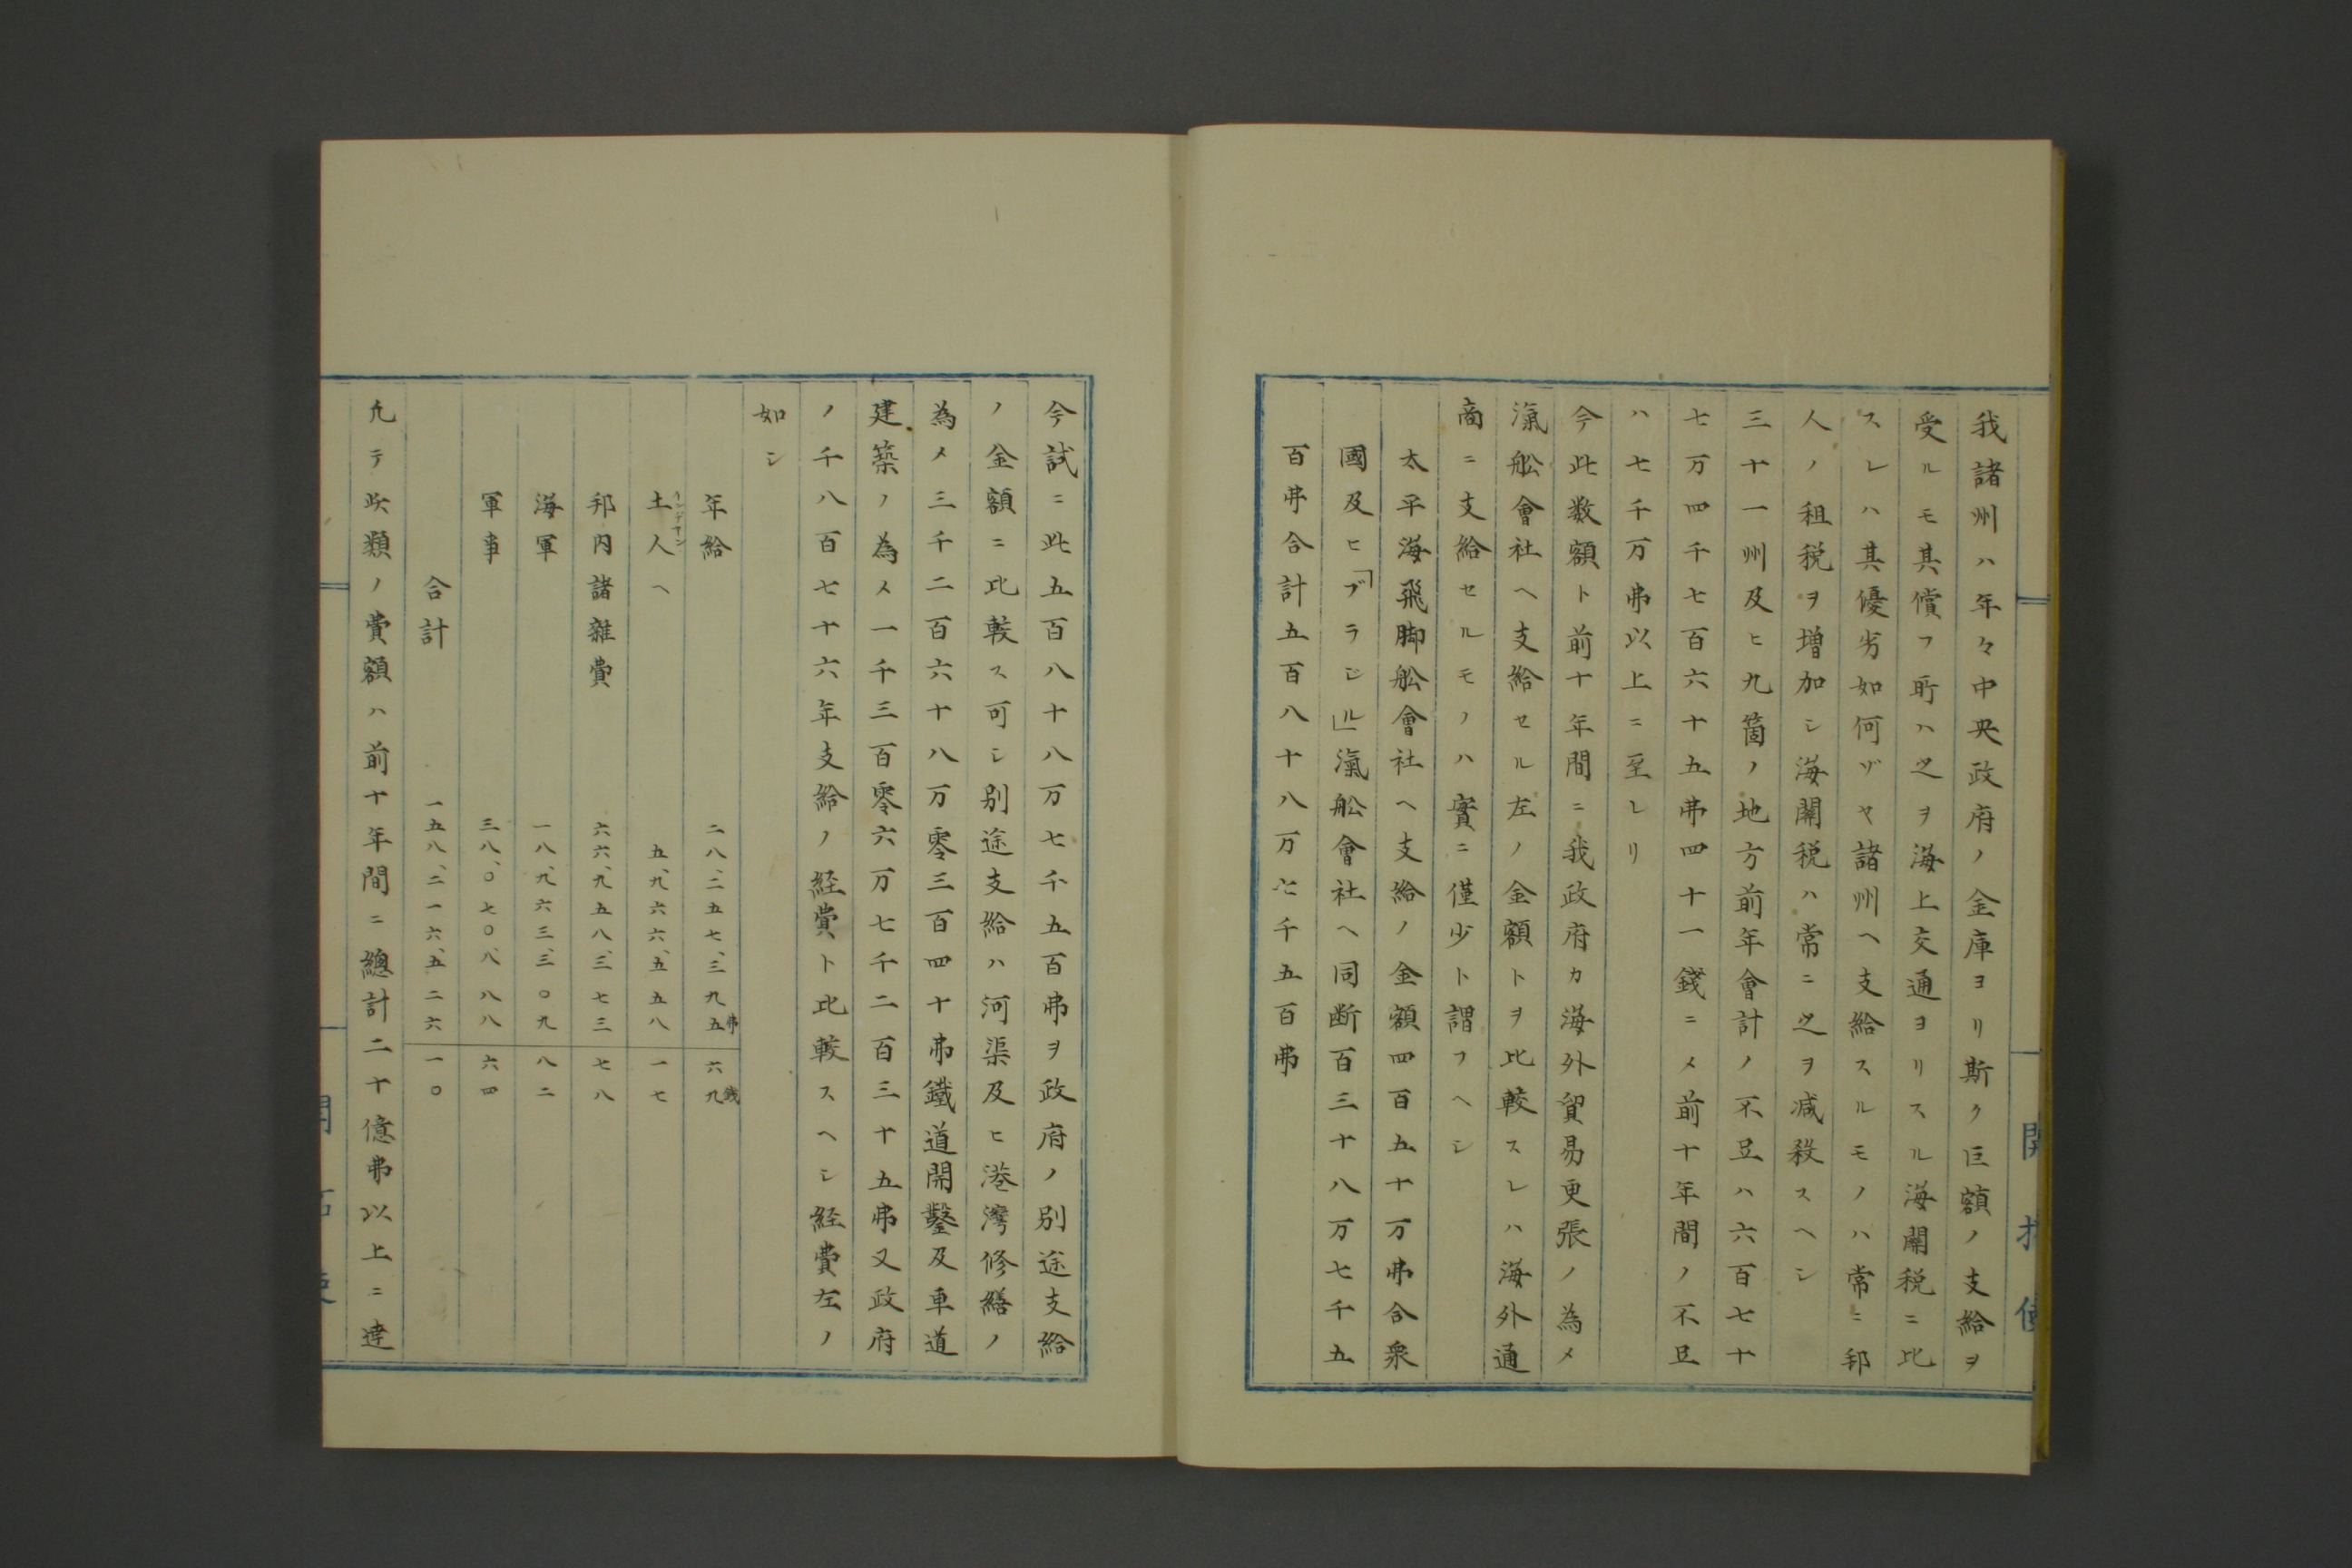 我諸州ハ年々中央政府ノ金庫ヨリ斯ク巨額ノ支給ヲ
受ルモ其償フ所ハ之ヲ海上交通ヨリスル海關税ニ比
スレハ其優劣如何ゾヤ諸州ヘ支給スルモノハ常ニ邦
人ノ租税ヲ増加シ海關税ハ常ニ之ヲ减殺スヘシ
三十一州及ヒ九箇ノ地方前年會計ノ不足ハ六百七十
七万四千七百六十五弗四十一錢ニメ前十年間ノ不足
ハ七千万弗以上ニ至レリ
今此数額ト前十年間ニ我政府カ海外貿易更張ノ為メ
滊舩會社ヘ支給セル左ノ金額トヲ比較スレハ海外通
商ニ支給セルモノハ實ニ僅少ト謂フヘシ
太平海飛脚舩會社ヘ支給ノ金額四百五十万弗合衆
國及ヒ「ブラシル」滊舩會社ヘ同断百三十八万七千五
百弗合計五百八十八万七千五百弗
今試ニ此五百八十八万七千五百弗ヲ政府ノ別途支給
ノ金額ニ比較ス可シ別途支給ハ河渠及ヒ港灣修繕ノ
為メ三千二百六十八万零三百四十弗鐵道開鑿及車道
建築ノ為メ一千三百零六万七千二百三十五弗又政府
ノ千八百七十六年支給ノ経費ト比較スヘシ経費左ノ
如シ
年給 二八、二五七、三九五弗 六九錢
土人ヘ インデアン 五、九六六、五五八 一七
邦内諸雜費 六六、九五八、三七三 七八
海軍 一八、九六三、三〇九 八二
軍事 三八、〇七〇、八八八 六四
合計 一五八、二一六、五二六 一〇
凢テ此類ノ費額ハ前十年間ニ總計二十億弗以上ニ達